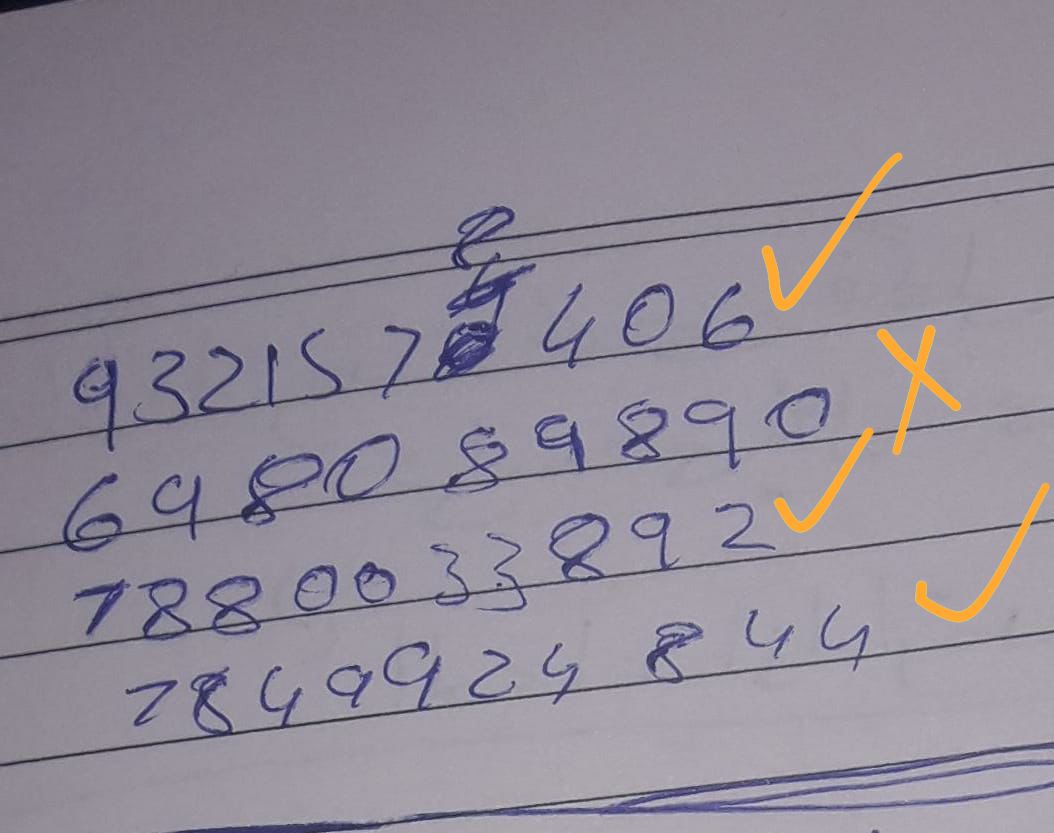 9321572406
698089890
7880033892
7849924844